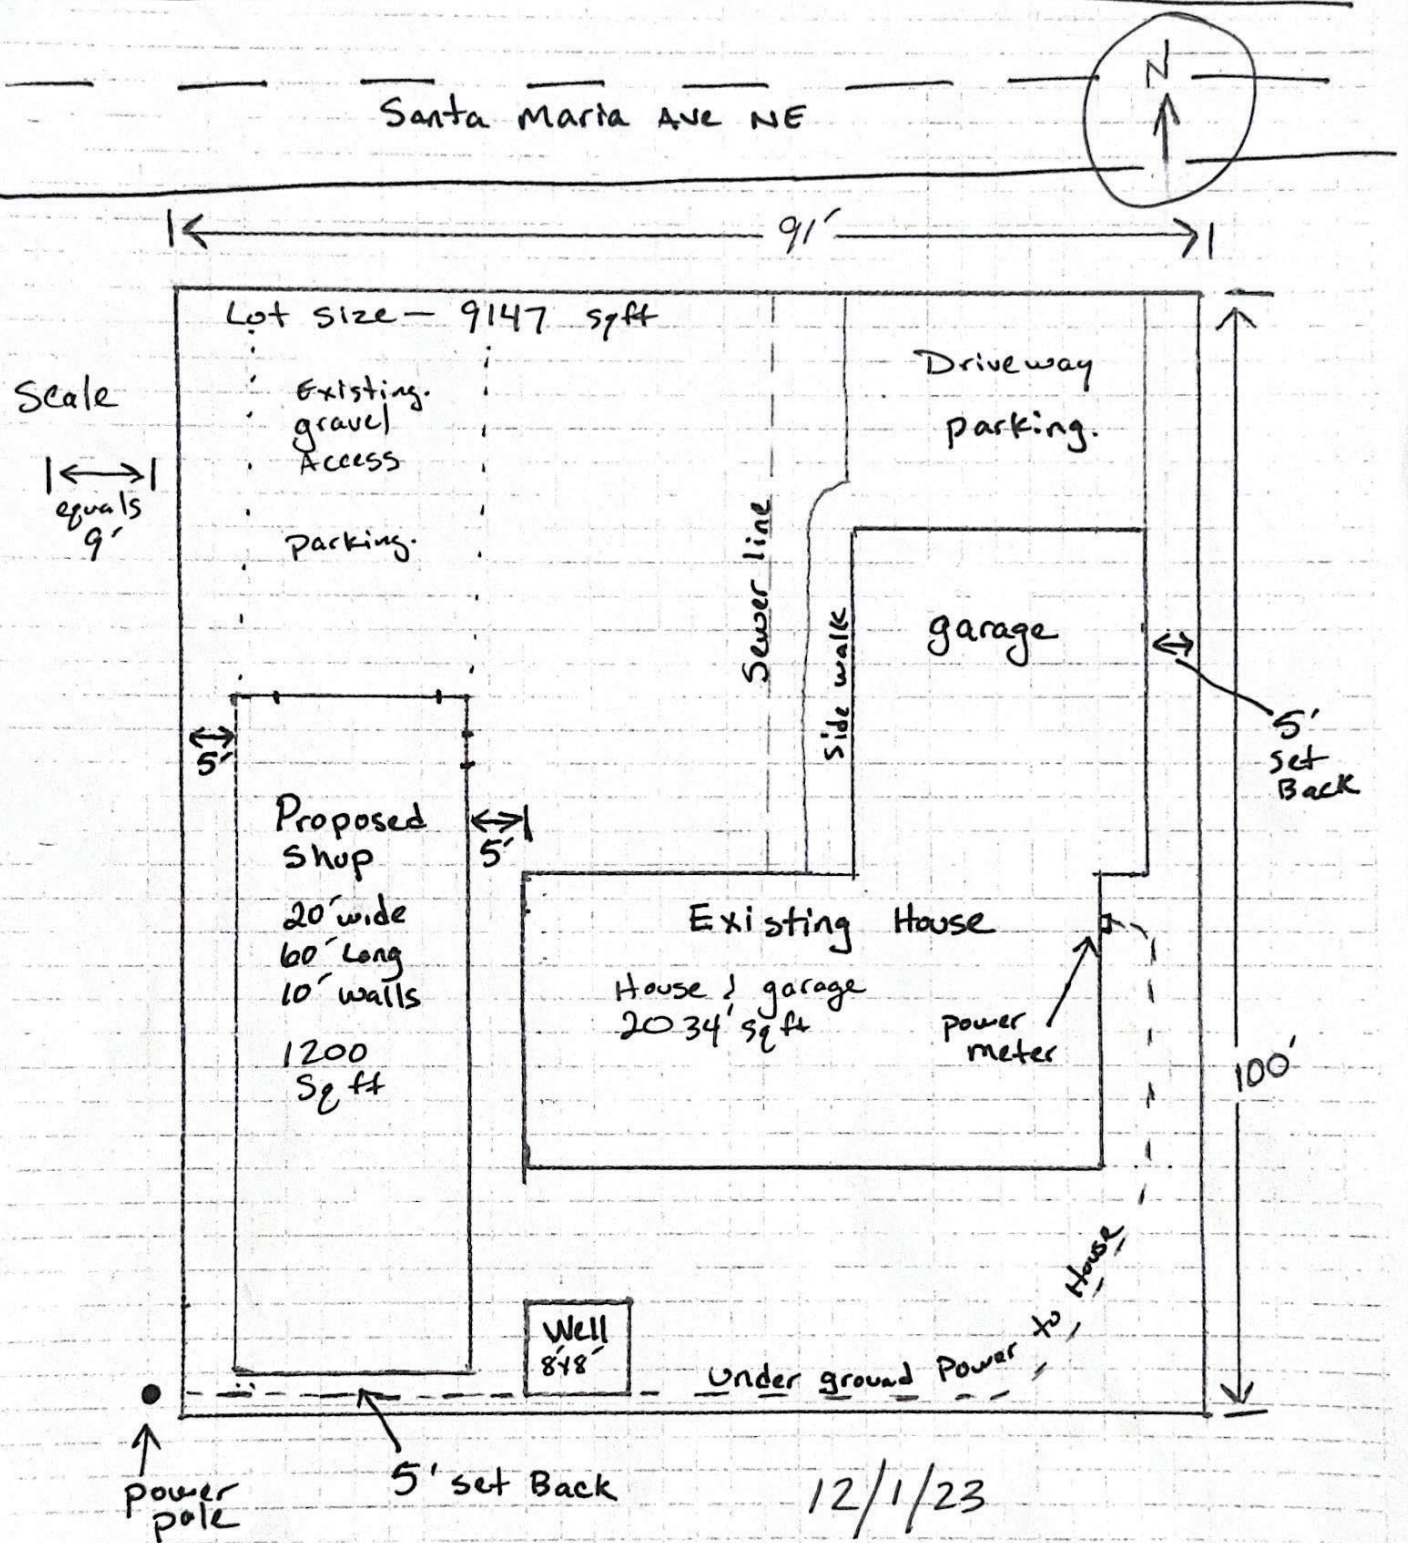 Santa Maria Ave NE
N
91'
Lot size - 9147 sqft
Scale
equals
9'
Existing.
gravel
Access
parking.
Driveway
parking.
Sewer line
Side walk
garage
5'
set
Back
5'
5'
Proposed
Shop
20' wide
60' Long
10' walls
1200
Sq ft
Existing House
House & garage
2034' sq ft
power
meter
100'
Well
8'x8'
Under ground Power to House
power
pole
5' set Back
12/1/23